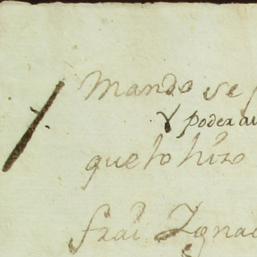 Mando se
y poder
que lo hizo
frai Ignac